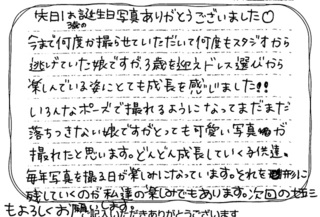 先日お誕生日写真ありがとうございました○
3歳の
今まで何度か撮らせていただいて何度もスタジオから
逃げていた娘ですが、3歳を迎えドレス選びから
楽しんでいる姿にとても成長を感じました!!
いろんなポーズで撮れるようになってまだまだ
落ちつきない娘ですがとっても可愛い写真が
撮れたと思います。どんどん成長していく子供達。
毎年写真を撮る日が楽しみになっています。それを形に
残していくのが私達の楽しみでもあります。次回の七五三
もよろしくお願いします。
記入いただきありがとうございます